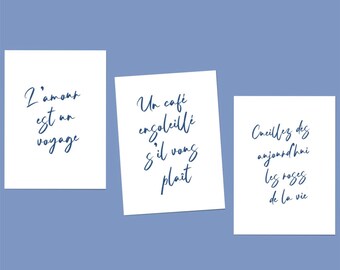 L'amour
est un
voyage
Un café
ensoleillé
s'il vous
plait
Cueillez dès
aujourd'hui
les roses
de la vie